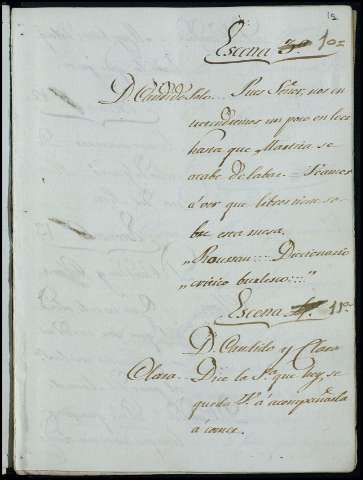 12
Escena 3ª 10ª
D. Candido Solo... Pues Señor, nos en
tretendremos un poco en leer
hasta que Martita se
acabe de labar. = Veamos
á ver que libros tiene so-
bre esta mesa.
"Rousseau:::: Diccionario
"critico burlesco::::"
Escena 4ª 11ª
D. Candido y Clara
Clara. Dice la Sª que hoy, se
queda V. á acompañarla
á comer.